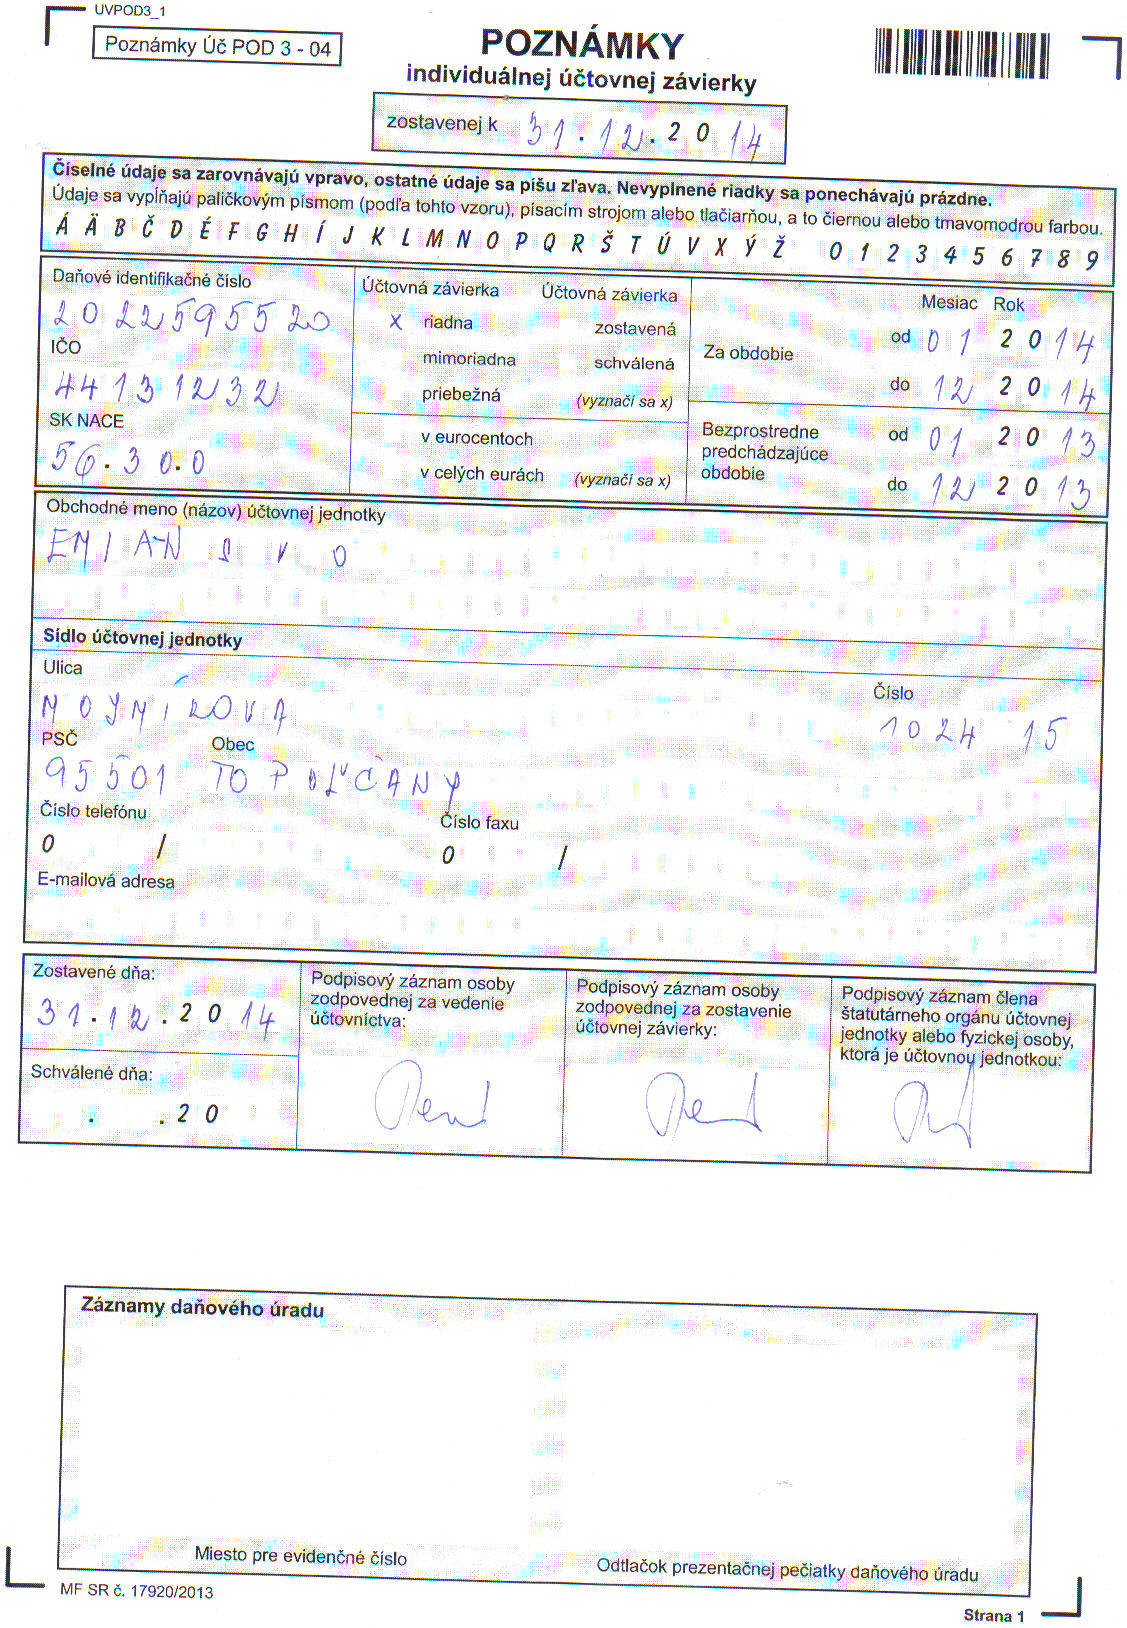 UVPOD3_1
Poznámky Úč POD 3 - 04
POZNÁMKY
individuálnej účtovnej závierky
zostavenej k 31.12.2014
Číselné údaje sa zarovnávajú vpravo, ostatné údaje sa píšu zľava. Nevyplnené riadky sa ponechávajú prázdne.
Údaje sa vypĺňajú paličkovým písmom (podľa tohto vzoru), písacím strojom alebo tlačiarňou, a to čiernou alebo tmavomodrou farbou.
Á Ä B Č D É F G H Í J K L M N O P Q R Š T Ú V X Ý Ž 0 1 2 3 4 5 6 7 8 9
Daňové identifikačné číslo
2022595520
IČO
44131232
SK NACE
56.30.0
Účtovná závierka Účtovná závierka
X riadna zostavená
mimoriadna schválená
priebežná (vyznačí sa x)
v eurocentoch
v celých eurách (vyznačí sa x)
Mesiac Rok
Za obdobie od 01 2014
do 12 2014
Bezprostredne predchádzajúce obdobie od 01 2013
do 12 2013
Obchodné meno (názov) účtovnej jednotky
EMIAN
Sídlo účtovnej jednotky
Ulica
MOJMÍROVA
Číslo
1024 15
PSČ Obec
95501 TOPOĽČANY
Číslo telefónu Číslo faxu
0 / 0 /
E-mailová adresa
Zostavené dňa:
31.12.2014
Schválené dňa:
. .20
Podpisový záznam osoby
zodpovednej za vedenie
účtovníctva:
Podpisový záznam osoby
zodpovednej za zostavenie
účtovnej závierky:
Podpisový záznam člena
štatutárneho orgánu účtovnej
jednotky alebo fyzickej osoby,
ktorá je účtovnou jednotkou:
Záznamy daňového úradu
Miesto pre evidenčné číslo
Odtlačok prezentačnej pečiatky daňového úradu
MF SR č. 17920/2013
Strana 1